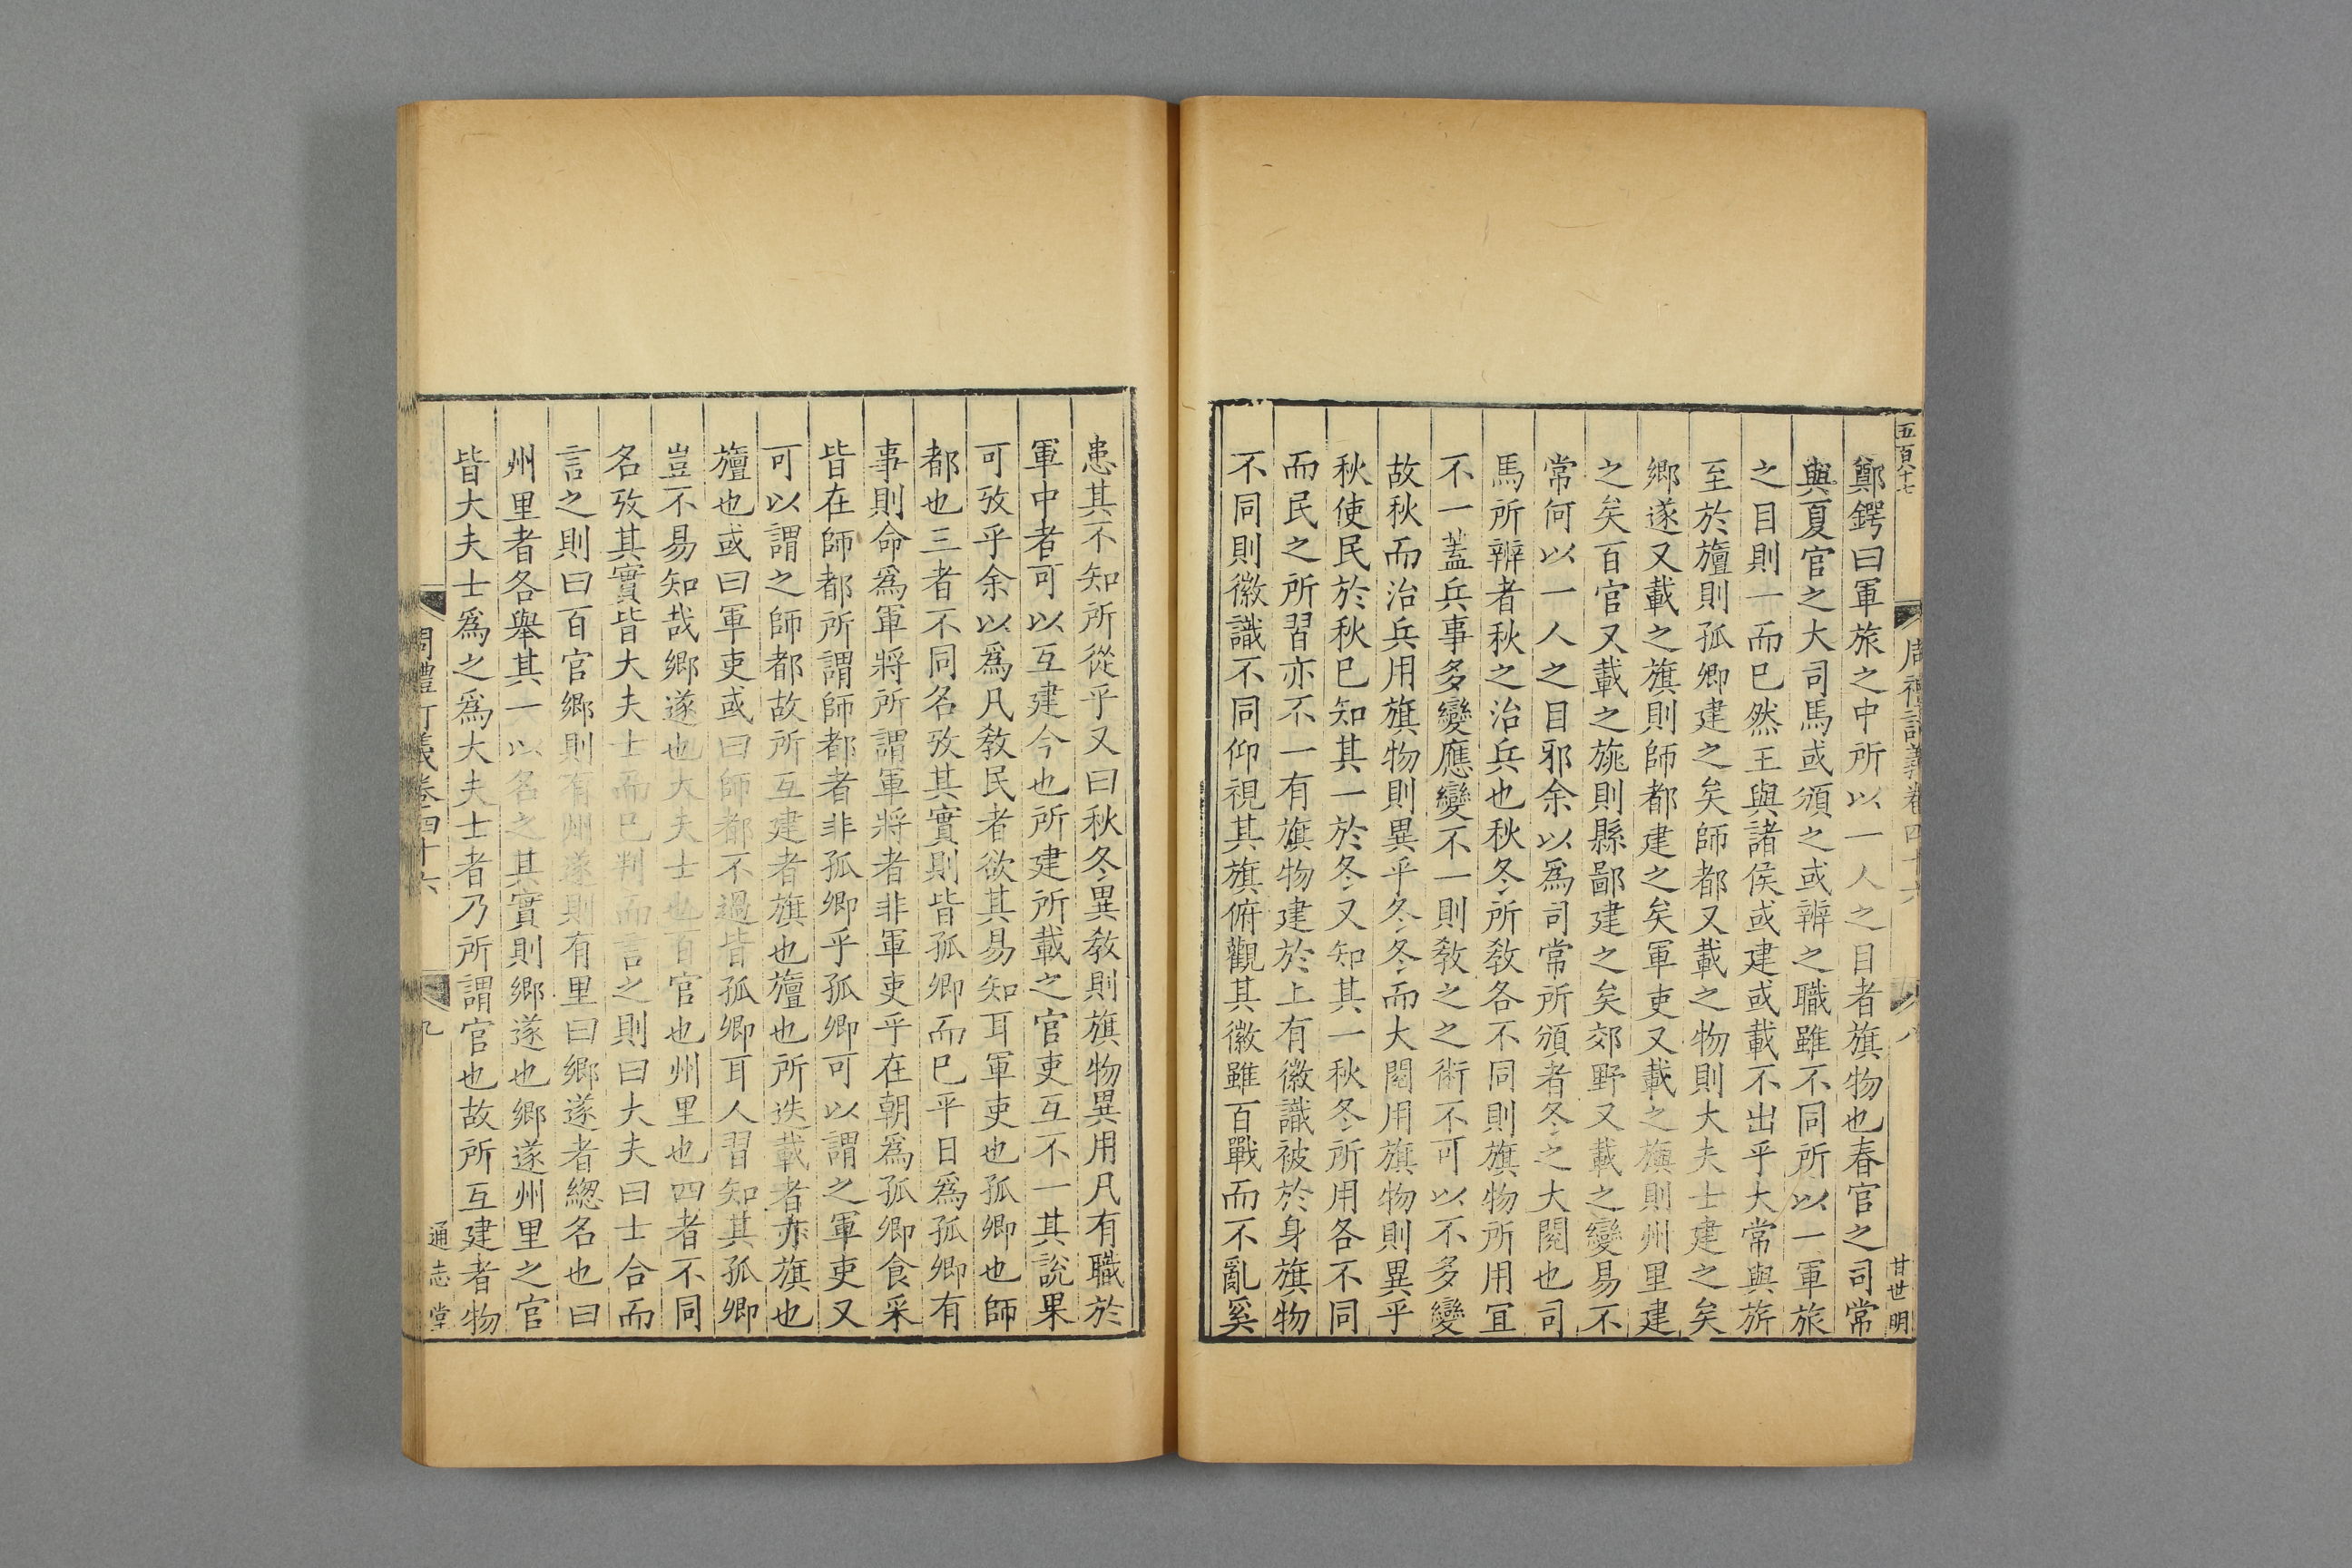 五百八十七
周禮訂義卷四十六
八
甘世明
鄭鍔曰軍旅之中所以一人之目者旗物也春官之司常
與夏官之大司馬或頒之或辨之職雖不同所以一軍旅
之目則一而已然王與諸侯或建或載不出乎大常與旂
至於旜則孤卿建之矣師都又載之物則大夫士建之矣
鄉遂又載之旗則師都建之矣軍吏又載之旟則州里建
之矣百官又載之旐則縣鄙建之矣郊野又載之變易不
常何以一人之目邪余以為司常所頒者冬之大閱也司
馬所辨者秋之治兵也秋冬所敎各不同則旗物所用宜
不一蓋兵事多變應變不一則敎之之術不可以不多變
故秋而治兵用旗物則異乎冬冬而大閱用旗物則異乎
秋使民於秋已知其一於冬又知其一秋冬所用各不同
而民之所習亦不一有旗物建於上有徽識被於身旗物
不同則徽識不同仰視其旗俯觀其徽雖百戰而不亂奚
患其不知所從乎又曰秋冬異敎則旗物異用凡有職於
軍中者可以互建今也所建所載之官吏互不一其說果
可攷乎余以爲凡敎民者欲其易知耳軍吏也孤卿也師
都也三者不同名攷其實則皆孤卿而已平日爲孤卿有
事則命爲軍將所謂軍將者非軍吏乎在朝爲孤卿食采
皆在師都所謂師都者非孤卿乎孤卿可以謂之軍吏又
可以謂之師都故所互建者旗也旜也所迭載者亦旗也
旜也或曰軍吏或曰師都不過皆孤卿耳人習知其孤卿
豈不易知哉鄉遂也大夫士也百官也州里也四者不同
名攷其實皆大夫士而已判而言之則曰大夫曰士合而
言之則曰百官鄉則有州遂則有里曰鄉遂者緫名也曰
州里者各舉其一以名之其實則鄉遂也鄉遂州里之官
皆大夫士爲之爲大夫士者乃所謂官也故所互建者物
周禮訂義卷四十六
九
通志堂